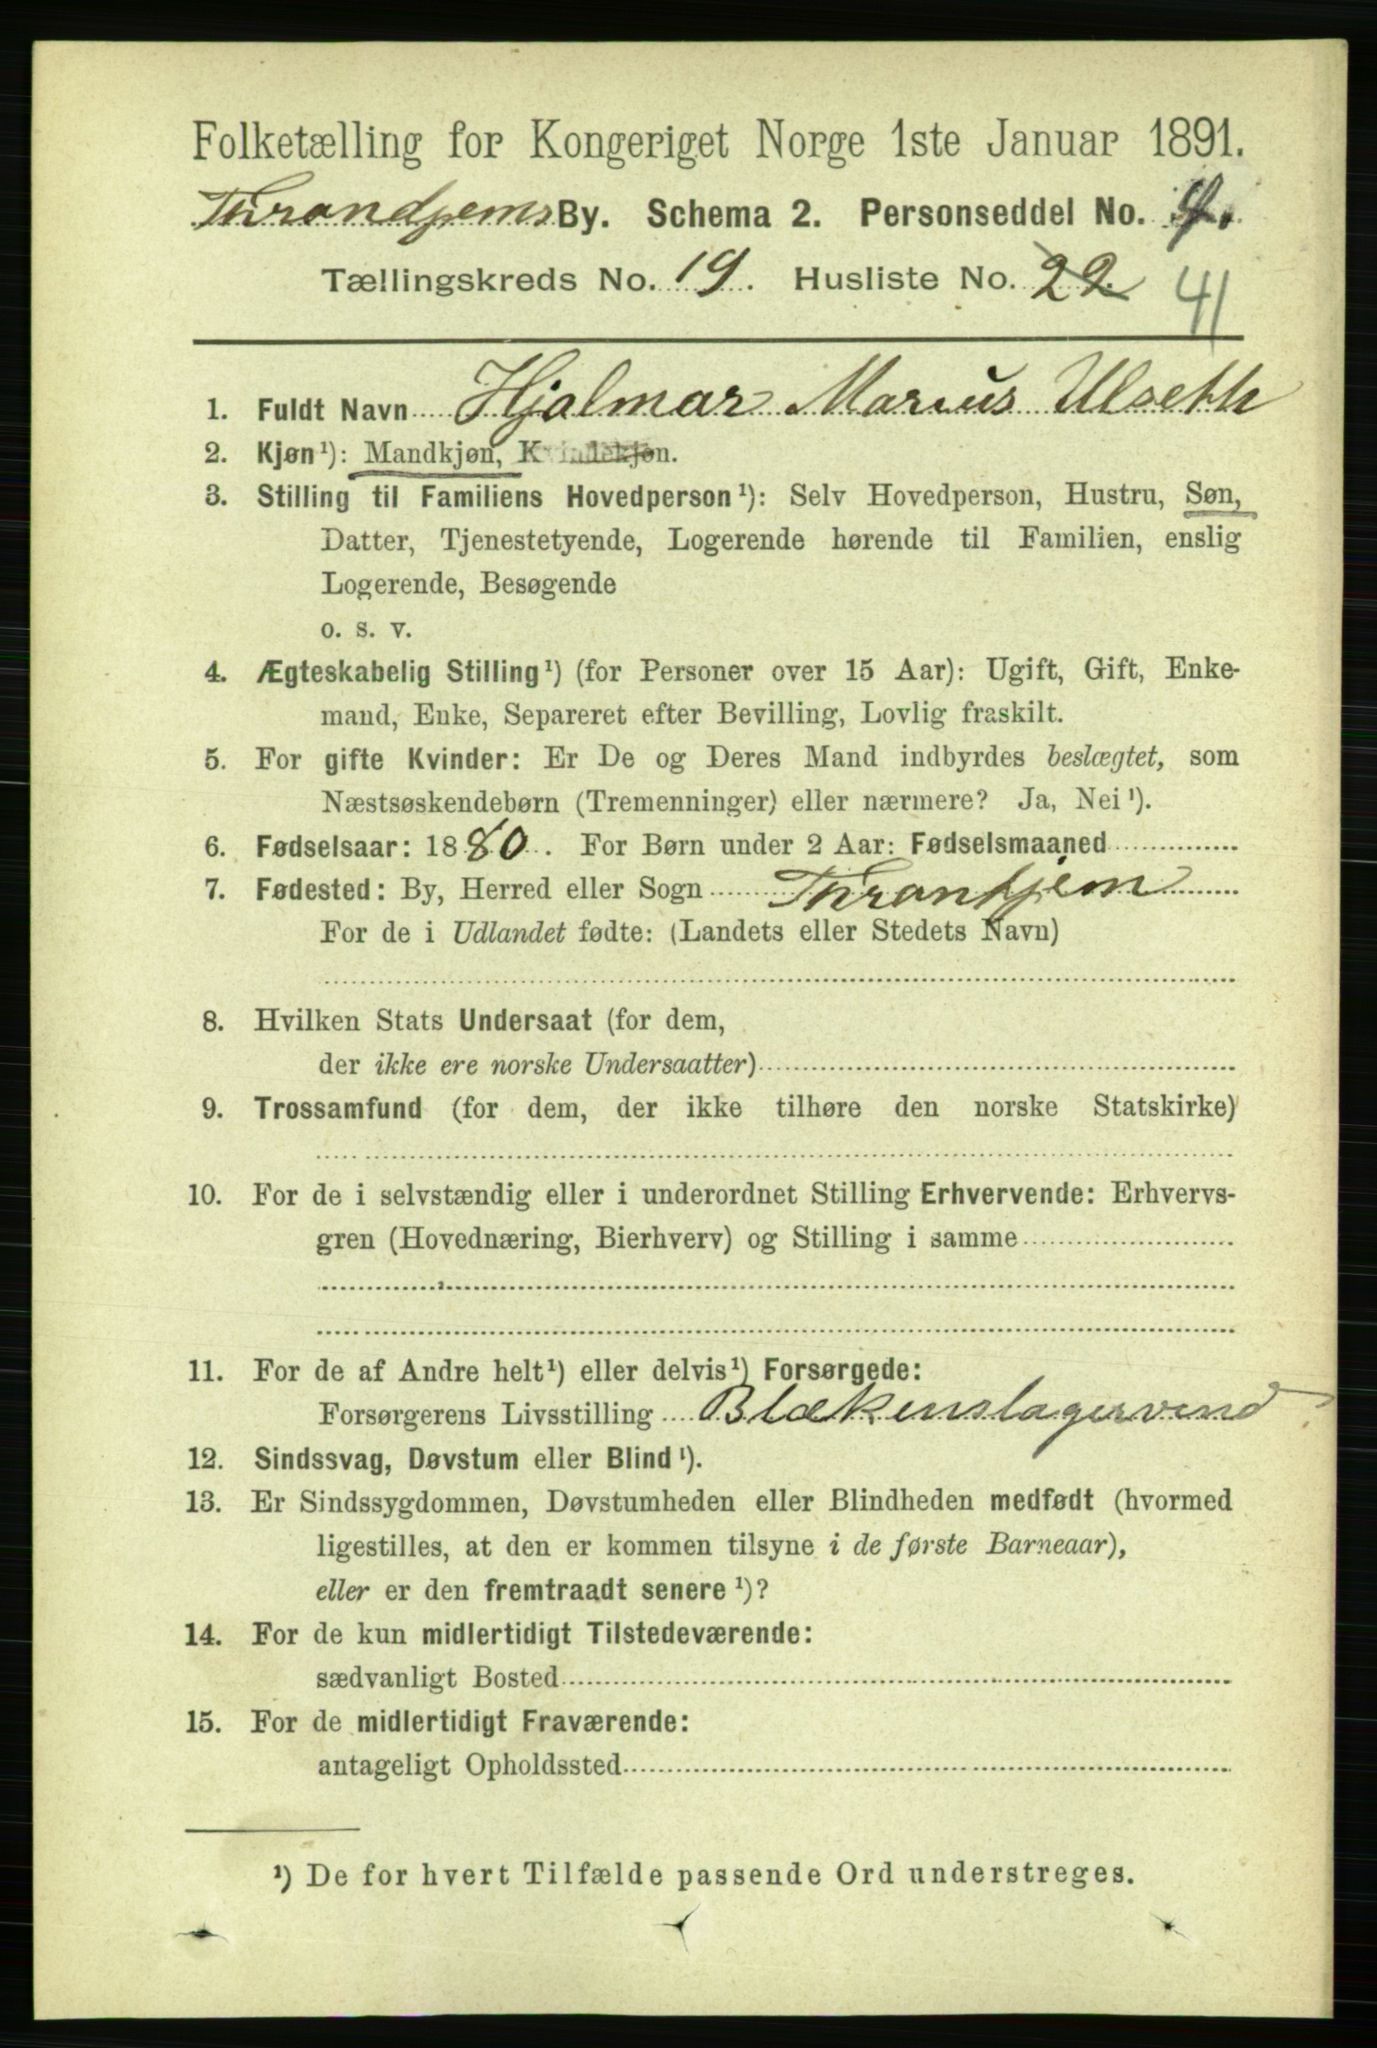 Folketælling for Kongeriget Norge 1ste Januar 1891.
Throndhjems By. Schema 2. Personseddel No.
Tællingskreds No. 19. Husliste No. 22. 41
1. Fuldt Navn Hjalmar Marius Ulseth
2. Kjøn¹): Mandkjøn, Kvindekjøn.
3. Stilling til Familiens Hovedperson¹): Selv Hovedperson, Hustru, Søn,
Datter, Tjenestetyende, Logerende hørende til Familien, enslig
Logerende, Besøgende
o. s. v.
4. Ægteskabelig Stilling¹) (for Personer over 15 Aar): Ugift, Gift, Enke-
mand, Enke, Separeret efter Bevilling, Lovlig fraskilt.
5. For gifte Kvinder: Er De og Deres Mand indbyrdes beslægtet, som
Næstsøskendebørn (Tremenninger) eller nærmere? Ja, Nei¹).
6. Fødselsaar: 1880. For Børn under 2 Aar: Fødselsmaaned
7. Fødested: By, Herred eller Sogn Thronhjem
For de i Udlandet fødte: (Landets eller Stedets Navn)
8. Hvilken Stats Undersaat (for dem,
der ikke ere norske Undersaatter)
9. Trossamfund (for dem, der ikke tilhøre den norske Statskirke)
10. For de i selvstændig eller i underordnet Stilling Erhvervende: Erhvervs-
gren (Hovednæring, Bierhverv) og Stilling i samme
11. For de af Andre helt¹) eller delvis¹) Forsørgede:
Forsørgerens Livsstilling Blækenslagersvend
12. Sindssvag, Døvstum eller Blind¹).
13. Er Sindssygdommen, Døvstumheden eller Blindheden medfødt (hvormed
ligestilles, at den er kommen tilsyne i de første Barneaar),
eller er den fremtraadt senere¹)?
14. For de kun midlertidigt Tilstedeværende:
sædvanligt Bosted
15. For de midlertidigt Fraværende:
antageligt Opholdssted
¹) De for hvert Tilfælde passende Ord understreges.